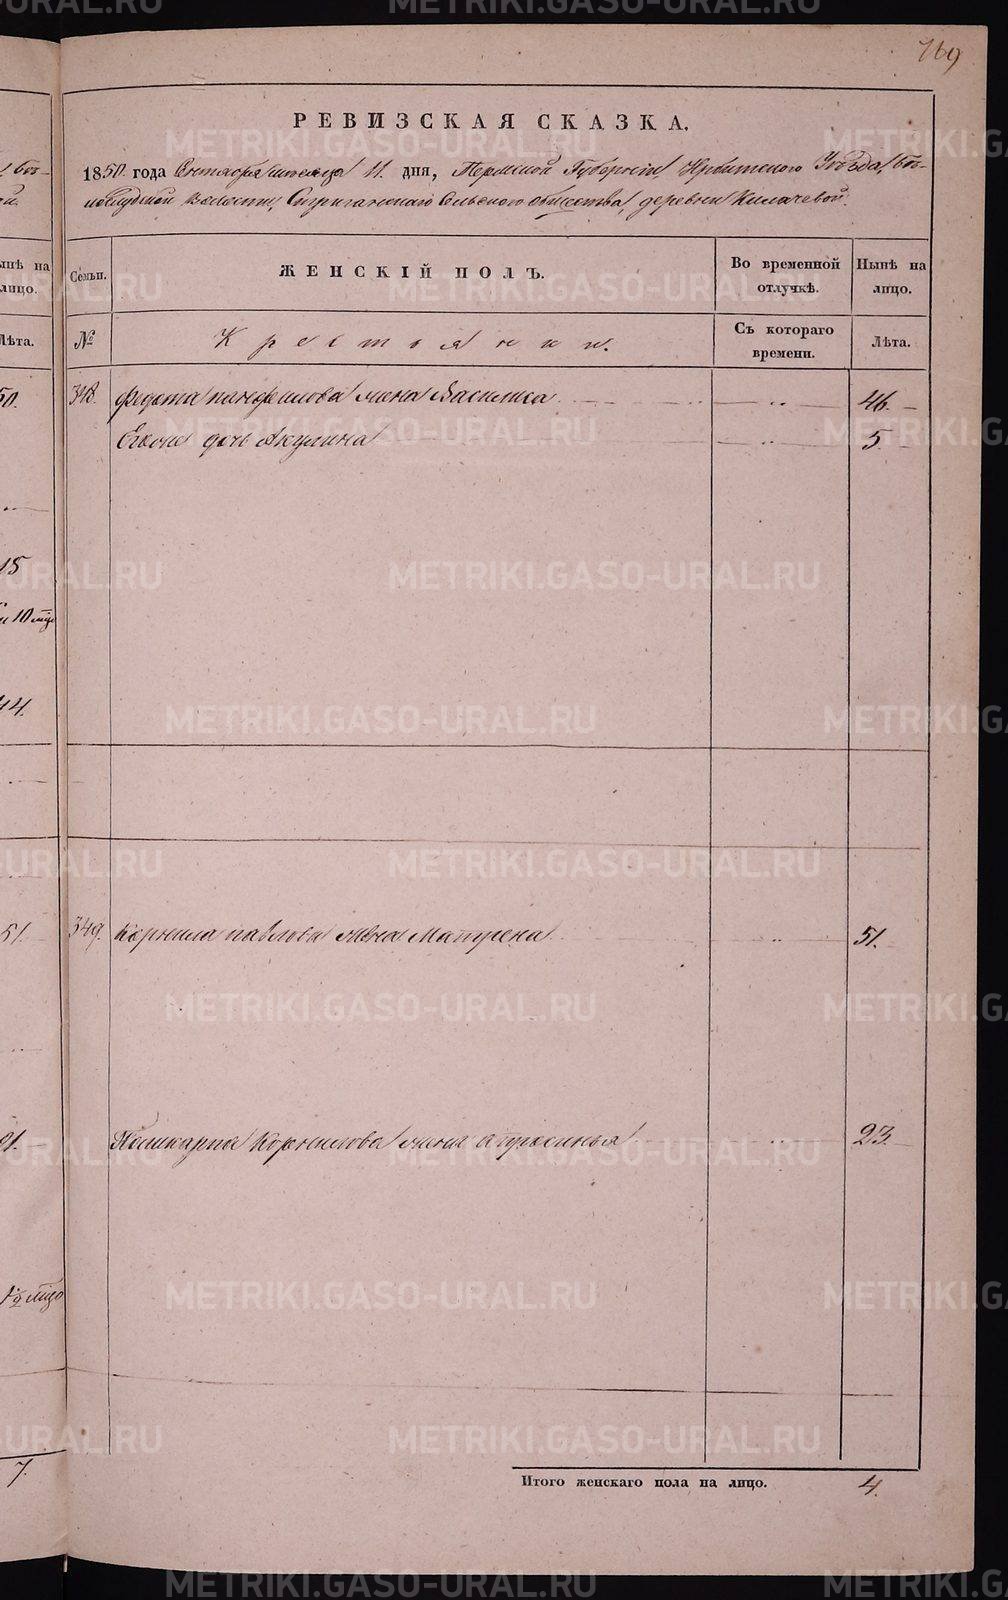 769
РЕВИЗСКАЯ СКАЗКА.
1850 года Сентября месяца 11 дня, Пермской Губернiи Ирбитского Уѣзда,
волости, Сельского общества, деревни Килачевой.
Семьи.
ЖЕНСКІЙ ПОЛЪ.
Во временной отлучкѣ.
Нынѣ на лицо.
№
Крестьянки.
Съ котораго времени.
Лѣта.
348. Федота панфилова жена Василиса 46.
Его дочь Акулина 5.
349. Корнила павлова жена Матрена 51.
Поликарпа Корнилова жена апросинья 23
Итого женскаго пола на лицо. 4.
ынѣ на
лицо.
Лѣта.
50.
15
и 10 мцо
44.
51.
мцо
7.
METRIKI.GASO-URAL.RU